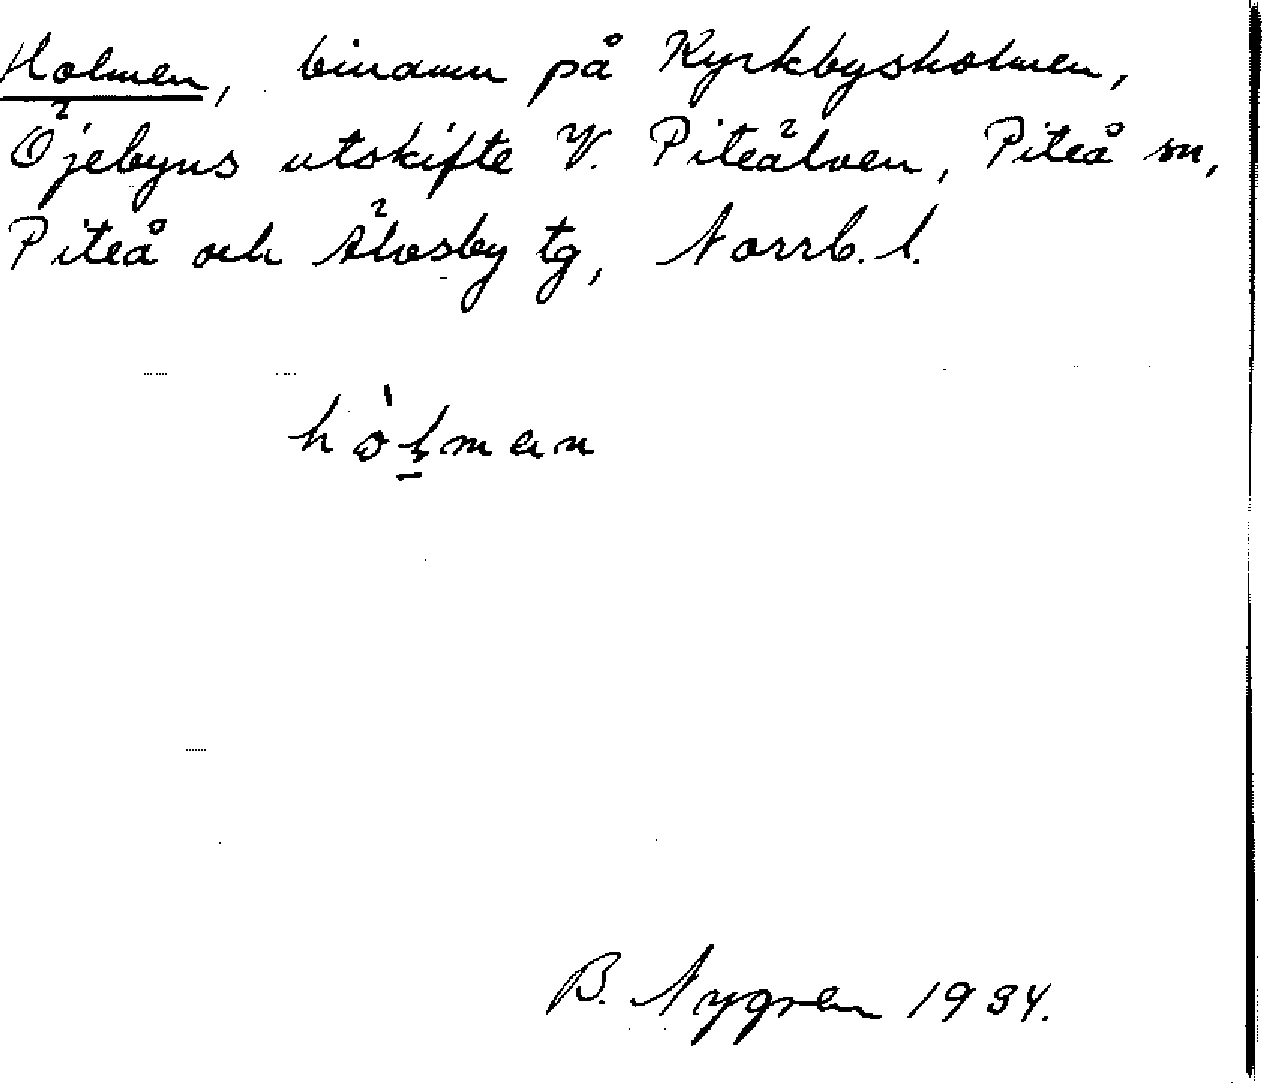 Holmen, binamn på Kyrkbysholmen,
Öjebyns utskifte V. Piteälven, Piteå sn,
Piteå och Älvsby tg, Norrb. l.
hòḷman
B. Nygren 1934.